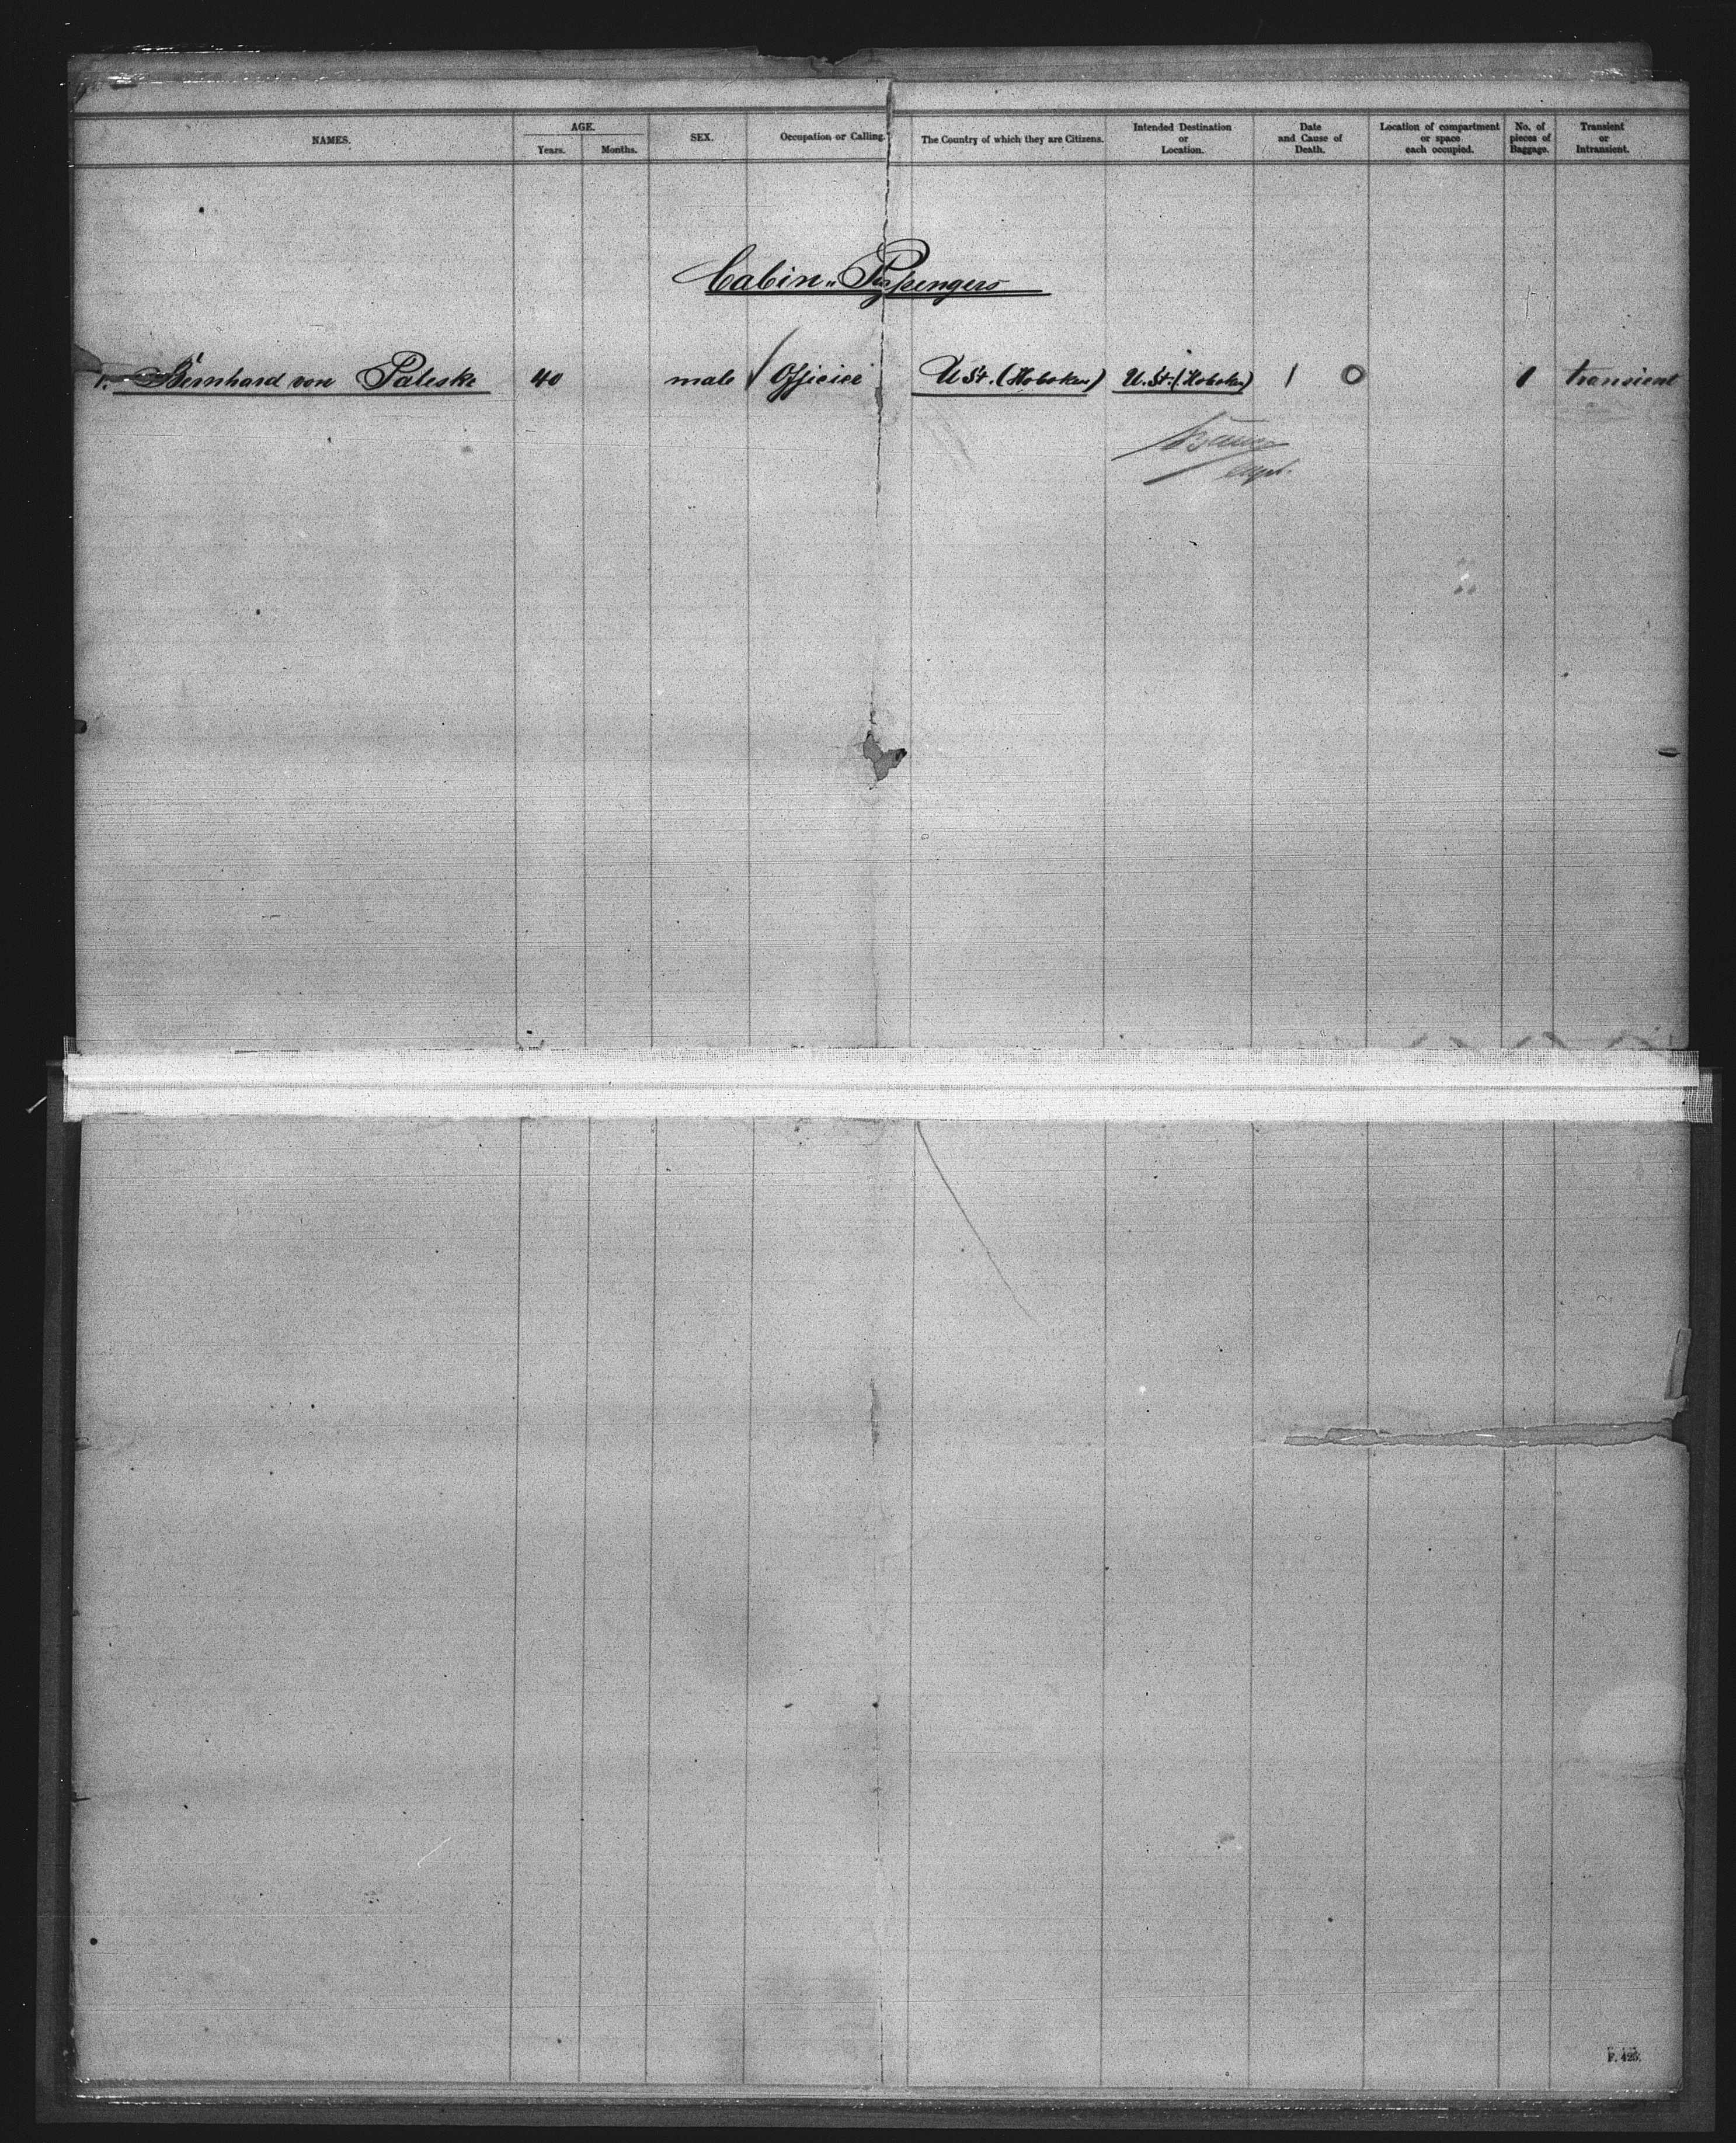 NAMES. AGE. Years. Months. SEX. Occupation or Calling. The Country of which they are Citizens. Intended Destination or Location. Date and Cause of Death. Location of compartment or space each occupied. No. of pieces of Baggage. Transient or Intransient.
Cabin-Passengers
1. Bernhard von Paleske 40 male Officier U St. (Hoboken) U. St. (Hoboken) 1 0 1 transient
capt.
F. 425.